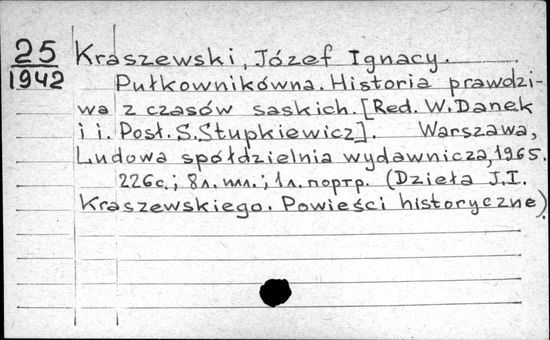 25
1942
Kraszewski, Józef Ignacy.
Pułkownikówna. Historia prawdzi-
wa z czasów saskich. [Red. W. Danek
i i. Posł. S. Stupkiewicz]. Warszawa,
Ludowa spółdzielnia wydawnicza, 1965.
226 с.; 8 л. илл.; 1 л. портр. (Dzieła J. I.
Kraszewskiego. Powieści historyczne)